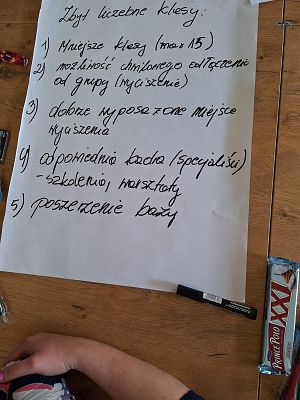 Zbyt liczebne klasy:
1) Mniejsze klasy (max 15)
2) możliwość chwilowego odłączenia
od grupy (wyciszenie)
3) dobrze wyposażone miejsce
wyciszenia
4) odpowiednia kadra (specjaliści)
- szkolenia, warsztaty
5) poszerzenie bazy
PRINCE POLO
XXL